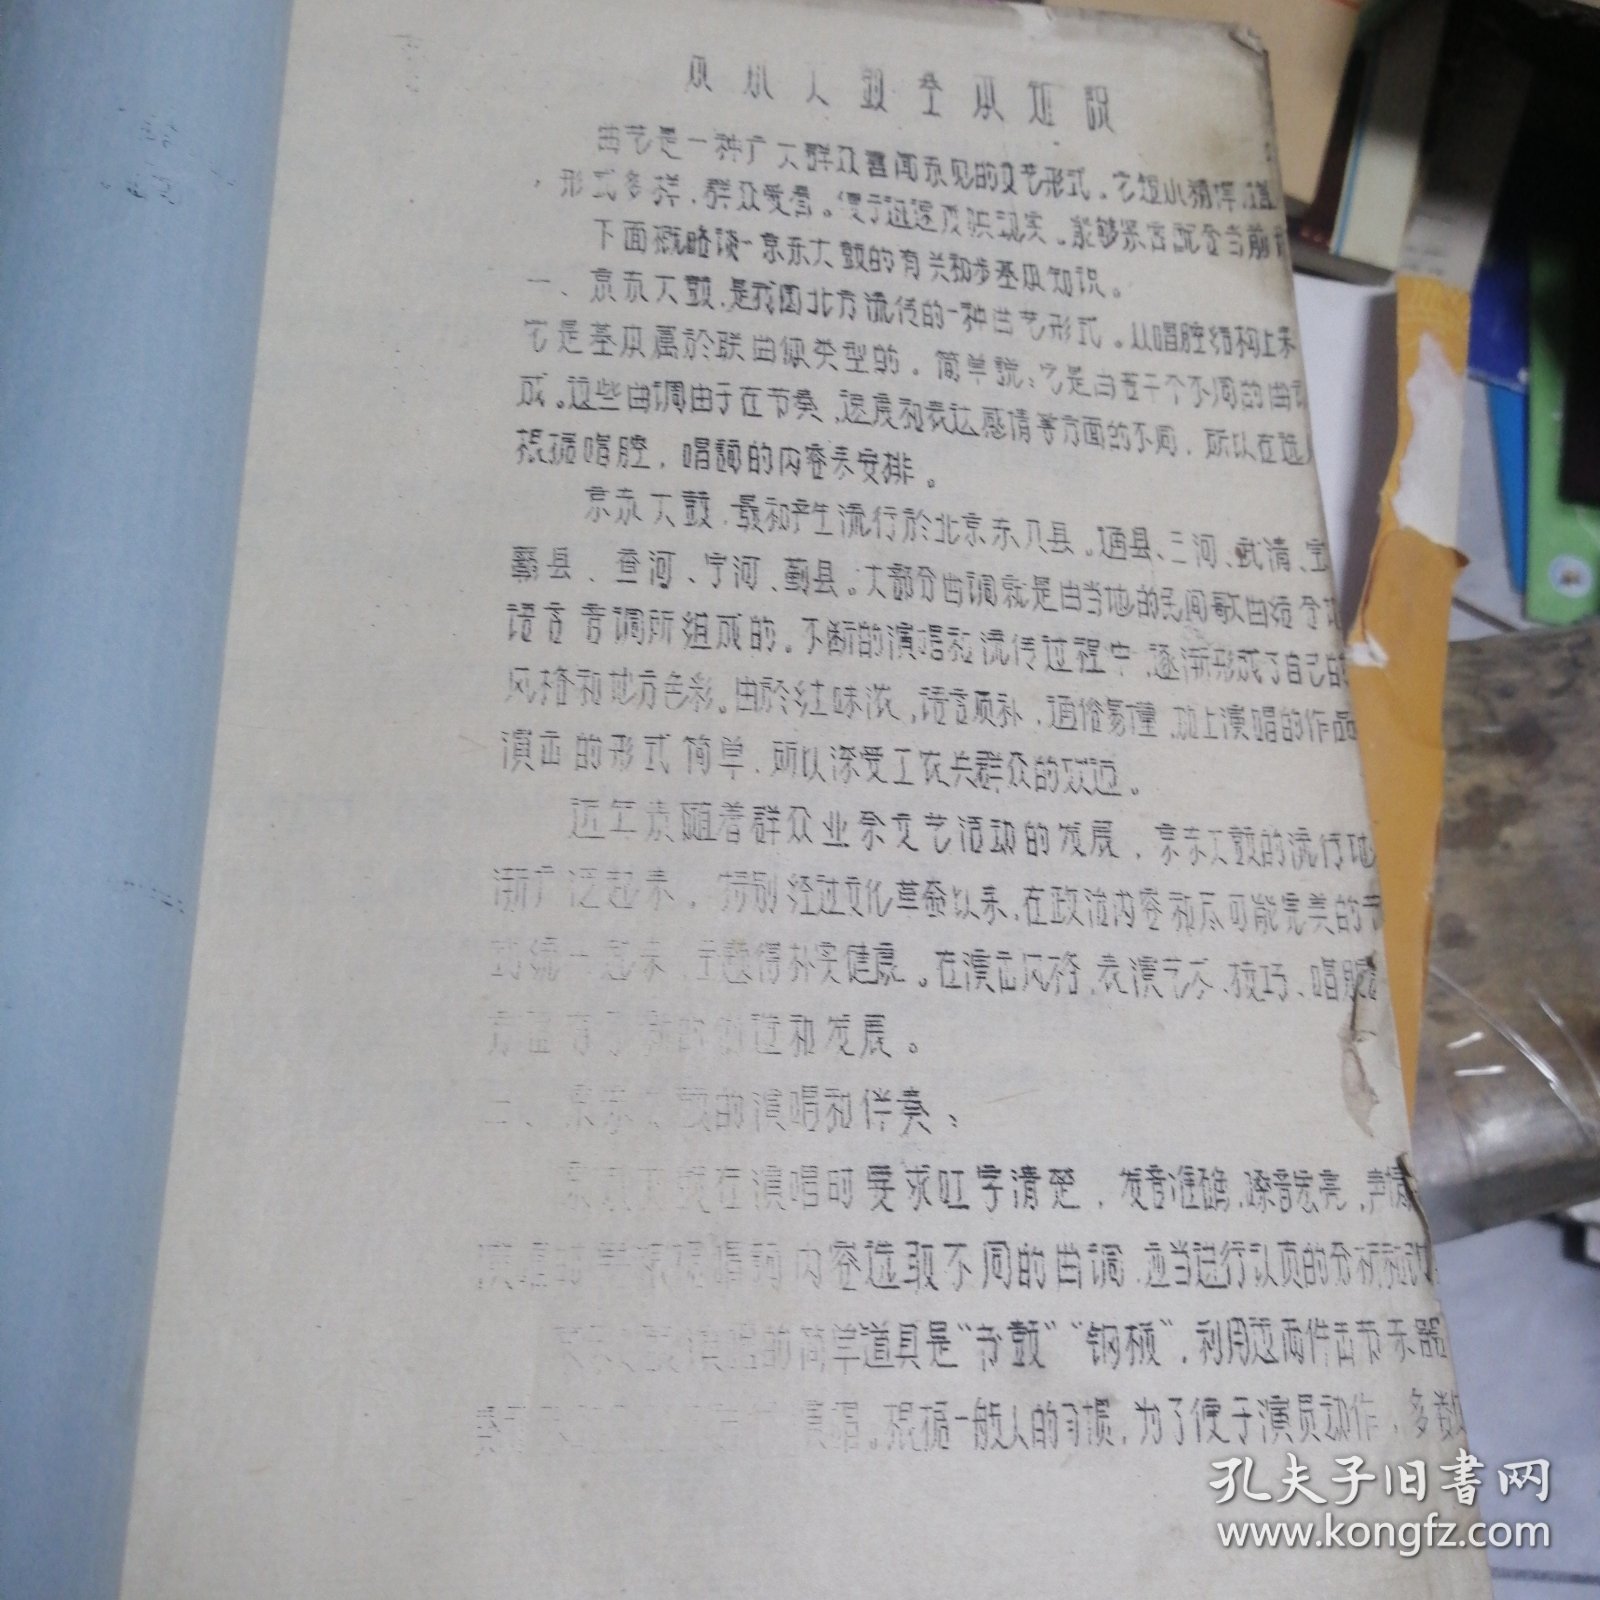 京东大鼓基本知识
曲艺是一种广大群众喜闻乐见的文艺形式。它短小精悍
，形式多样，群众受看。便于迅速反映现实。能够紧密配合当前
下面概略谈一京东大鼓的有关初步基本知识。
一、京东大鼓，是我国北方流传的一种曲艺形式。从唱腔结构上来
它是基本属於联曲体类型的。简单说：它是由若干个不同的曲
成。这些曲调由于在节奏，速度和表达感情等方面的不同，所以在选
根据唱腔，唱词的内容来安排。
京东大鼓，最初产生流行於北京东八县。通县、三河、武清、宝
蓟县、香河、宁河、蓟县。大部分曲调就是由当地的民间歌曲结合
语言音调所组成的。不断的演唱和流传过程中，逐渐形成了自己的
风格和地方色彩。由於红味浓，语言顺朴，通俗易懂，加上演唱的作品
演出的形式简单，所以深受工农兵群众的欢迎。
近年来随着群众业余文艺活动的发展，京东大鼓的流行地
渐广泛起来。特别经过文化革命以来，在政治内容和尽可能完美的
的统一起来，主题得朴实健康。在演出风格，表演艺术、技巧、唱腔
方面有了新的创造和发展。
二、京东大鼓的演唱和伴奏：
京东大鼓在演唱时要求吐字清楚，发音准确，嗓音宏亮，声情
演唱时要根据唱词内容选取不同的曲调，应当进行认真的分析和
京东大鼓演出的简单道具是“书鼓”“钢板”，利用这两件击节乐器
根据一般人的习惯，为了便于演员动作，多数
孔夫子旧书网
www.kongfz.com